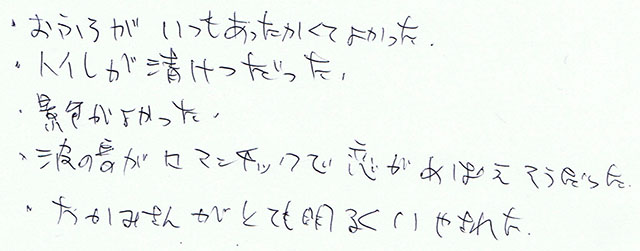 ・おふろが いつもあったかくてよかった.
・トイレが清けつだった,
・景色がよかった,
・波の音がロマンチックで 恋がめばえそうだった.
・おかみさんがとても明るくいやされた.